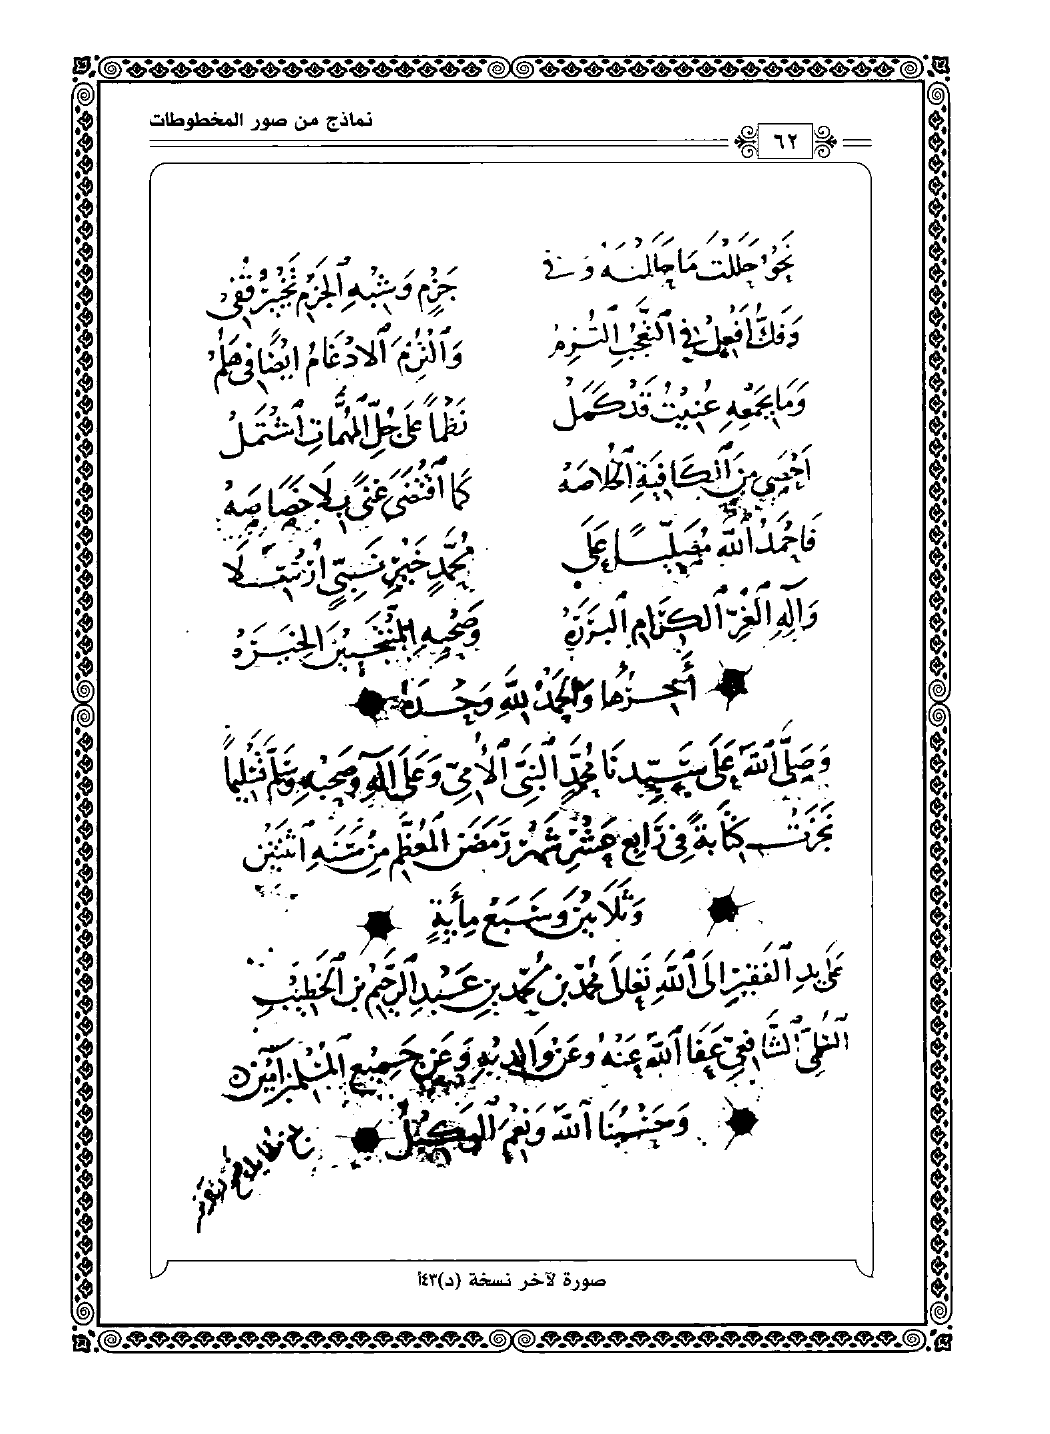 نماذج من صور المخطوطات
٦٢
نَحْوُ حَلَلْتُ مَا حَلَلْنَهُ وَفِي جَزْمٍ وَشِبْهِ الجَزْمِ تَخْيِيرٌ قُفِي
وَفَكُّ أَفْعِلْ فِي التَّعَجُّبِ الْتُزِمْ وَالْتُزِمَ الادْغَامُ ايْضًا فِي هَلُمْ
وَمَا بِجَمْعِهِ عُنِيتُ قَدْ كَمَلْ نَظْمًا عَلَى جُلِّ المُهِمَّاتِ اشْتَمَلْ
أَحْصَى مِنَ الكَافِيَةِ الخُلاصَهْ كَمَا اقْتَضَى غِنًى بِلَا خَصَاصَهْ
فَأَحْمَدُ اللَّهَ مُصَلِّيًا عَلَى مُحَمَّدٍ خَيْرِ نَبِيٍّ أُرْسِلَا
وَآلِهِ الغُرِّ الكِرَامِ البَرَرَهْ وَصَحْبِهِ المُنْتَخَبِينَ الخِيَرَهْ
آخِرُهَا وَالحَمْدُ لِلَّهِ وَحْدَهُ
وَصَلَّى اللَّهُ عَلَى سَيِّدِنَا مُحَمَّدٍ النَّبِيِّ الأُمِّيِّ وَعَلَى آلِهِ وَصَحْبِهِ وَسَلَّمَ تَسْلِيمًا
نَجَزَتْ كِتَابَةً فِي رَابِعِ عَشْرِ شَهْرِ رَمَضَنَ المُعَظَّمِ مِنْ سَنَةِ اثْنَتَيْنِ
وَثَلَاثِينَ وَسَبْعِ مِأَيَةٍ
عَلَى يَدِ الفَقِيرِ إِلَى اللَّهِ تَعَالَى مُحَمَّد بْنِ مُحَمَّدِ بْنِ عَبْدِ الرَّحِيمِ بْنِ الخَطِيبِ
الشَّافِعِيِّ عَفَا اللَّهُ عَنْهُ وَعَنْ وَالِدَيْهِ وَعَنْ جَمِيعِ المُسْلِمِينَ آمِينَ
وَحَسْبُنَا اللَّهُ وَنِعْمَ الوَكِيلُ
صورة لآخر نسخة (د)٤٣أ